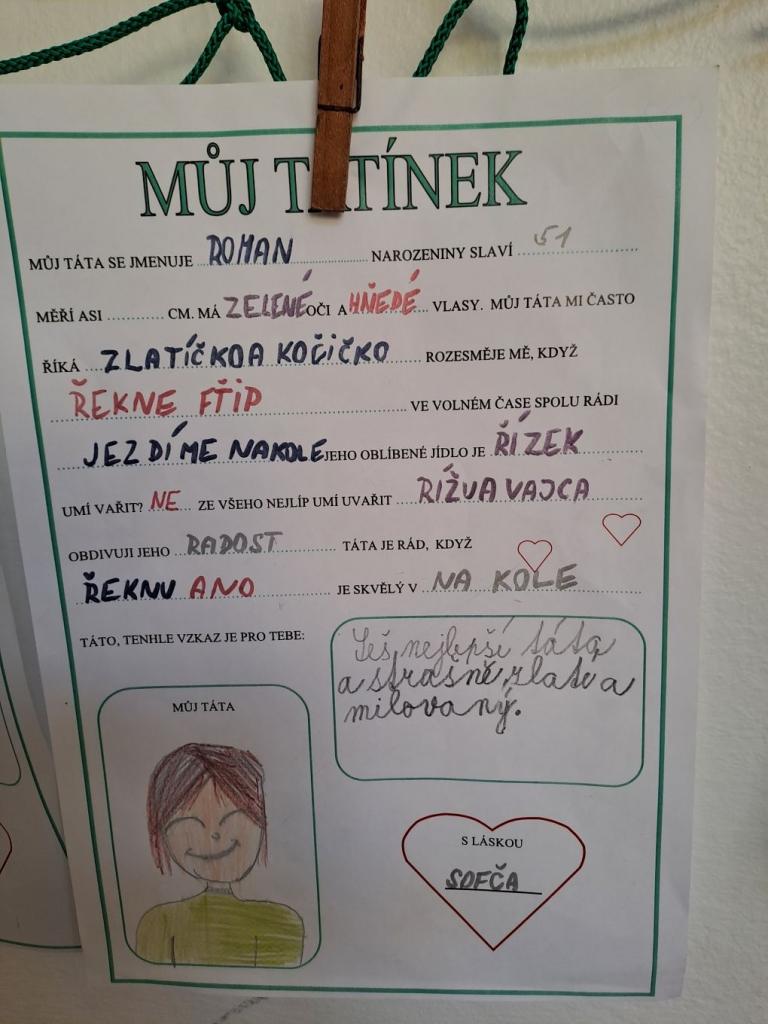 MŮJ TATÍNEK
MŮJ TÁTA SE JMENUJE ROMAN NAROZENINY SLAVÍ 51
MĚŘÍ ASI .......... CM. MÁ ZELENÉ OČI A HŇEDÉ VLASY. MŮJ TÁTA MI ČASTO
ŘÍKÁ ZLATÍČKO A KOČIČKO ROZESMĚJE MĚ, KDYŽ
ŘEKNE FŤIP VE VOLNÉM ČASE SPOLU RÁDI
JEZDÍME NAKOLE JEHO OBLÍBENÉ JÍDLO JE ŘÍZEK
UMÍ VAŘIT? NE ZE VŠEHO NEJLÍP UMÍ UVAŘIT RÍŽU A VAJCA
OBDIVUJI JEHO RADOST TÁTA JE RÁD, KDYŽ
ŘEKNU ANO JE SKVĚLÝ V NA KOLE
TÁTO, TENHLE VZKAZ JE PRO TEBE:
Seš nejlepší táta
a strašně zlatý a
milovaný.
MŮJ TÁTA
S LÁSKOU
SOFČA